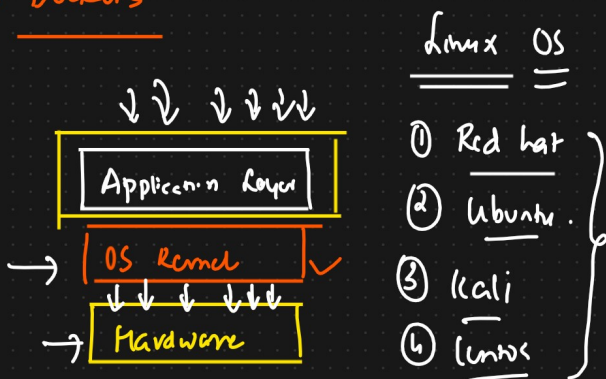 Dockers
Application Layer
OS Kernel
Hardware
Linux OS
① Red hat
② Ubuntu.
③ Kali
④ Centos